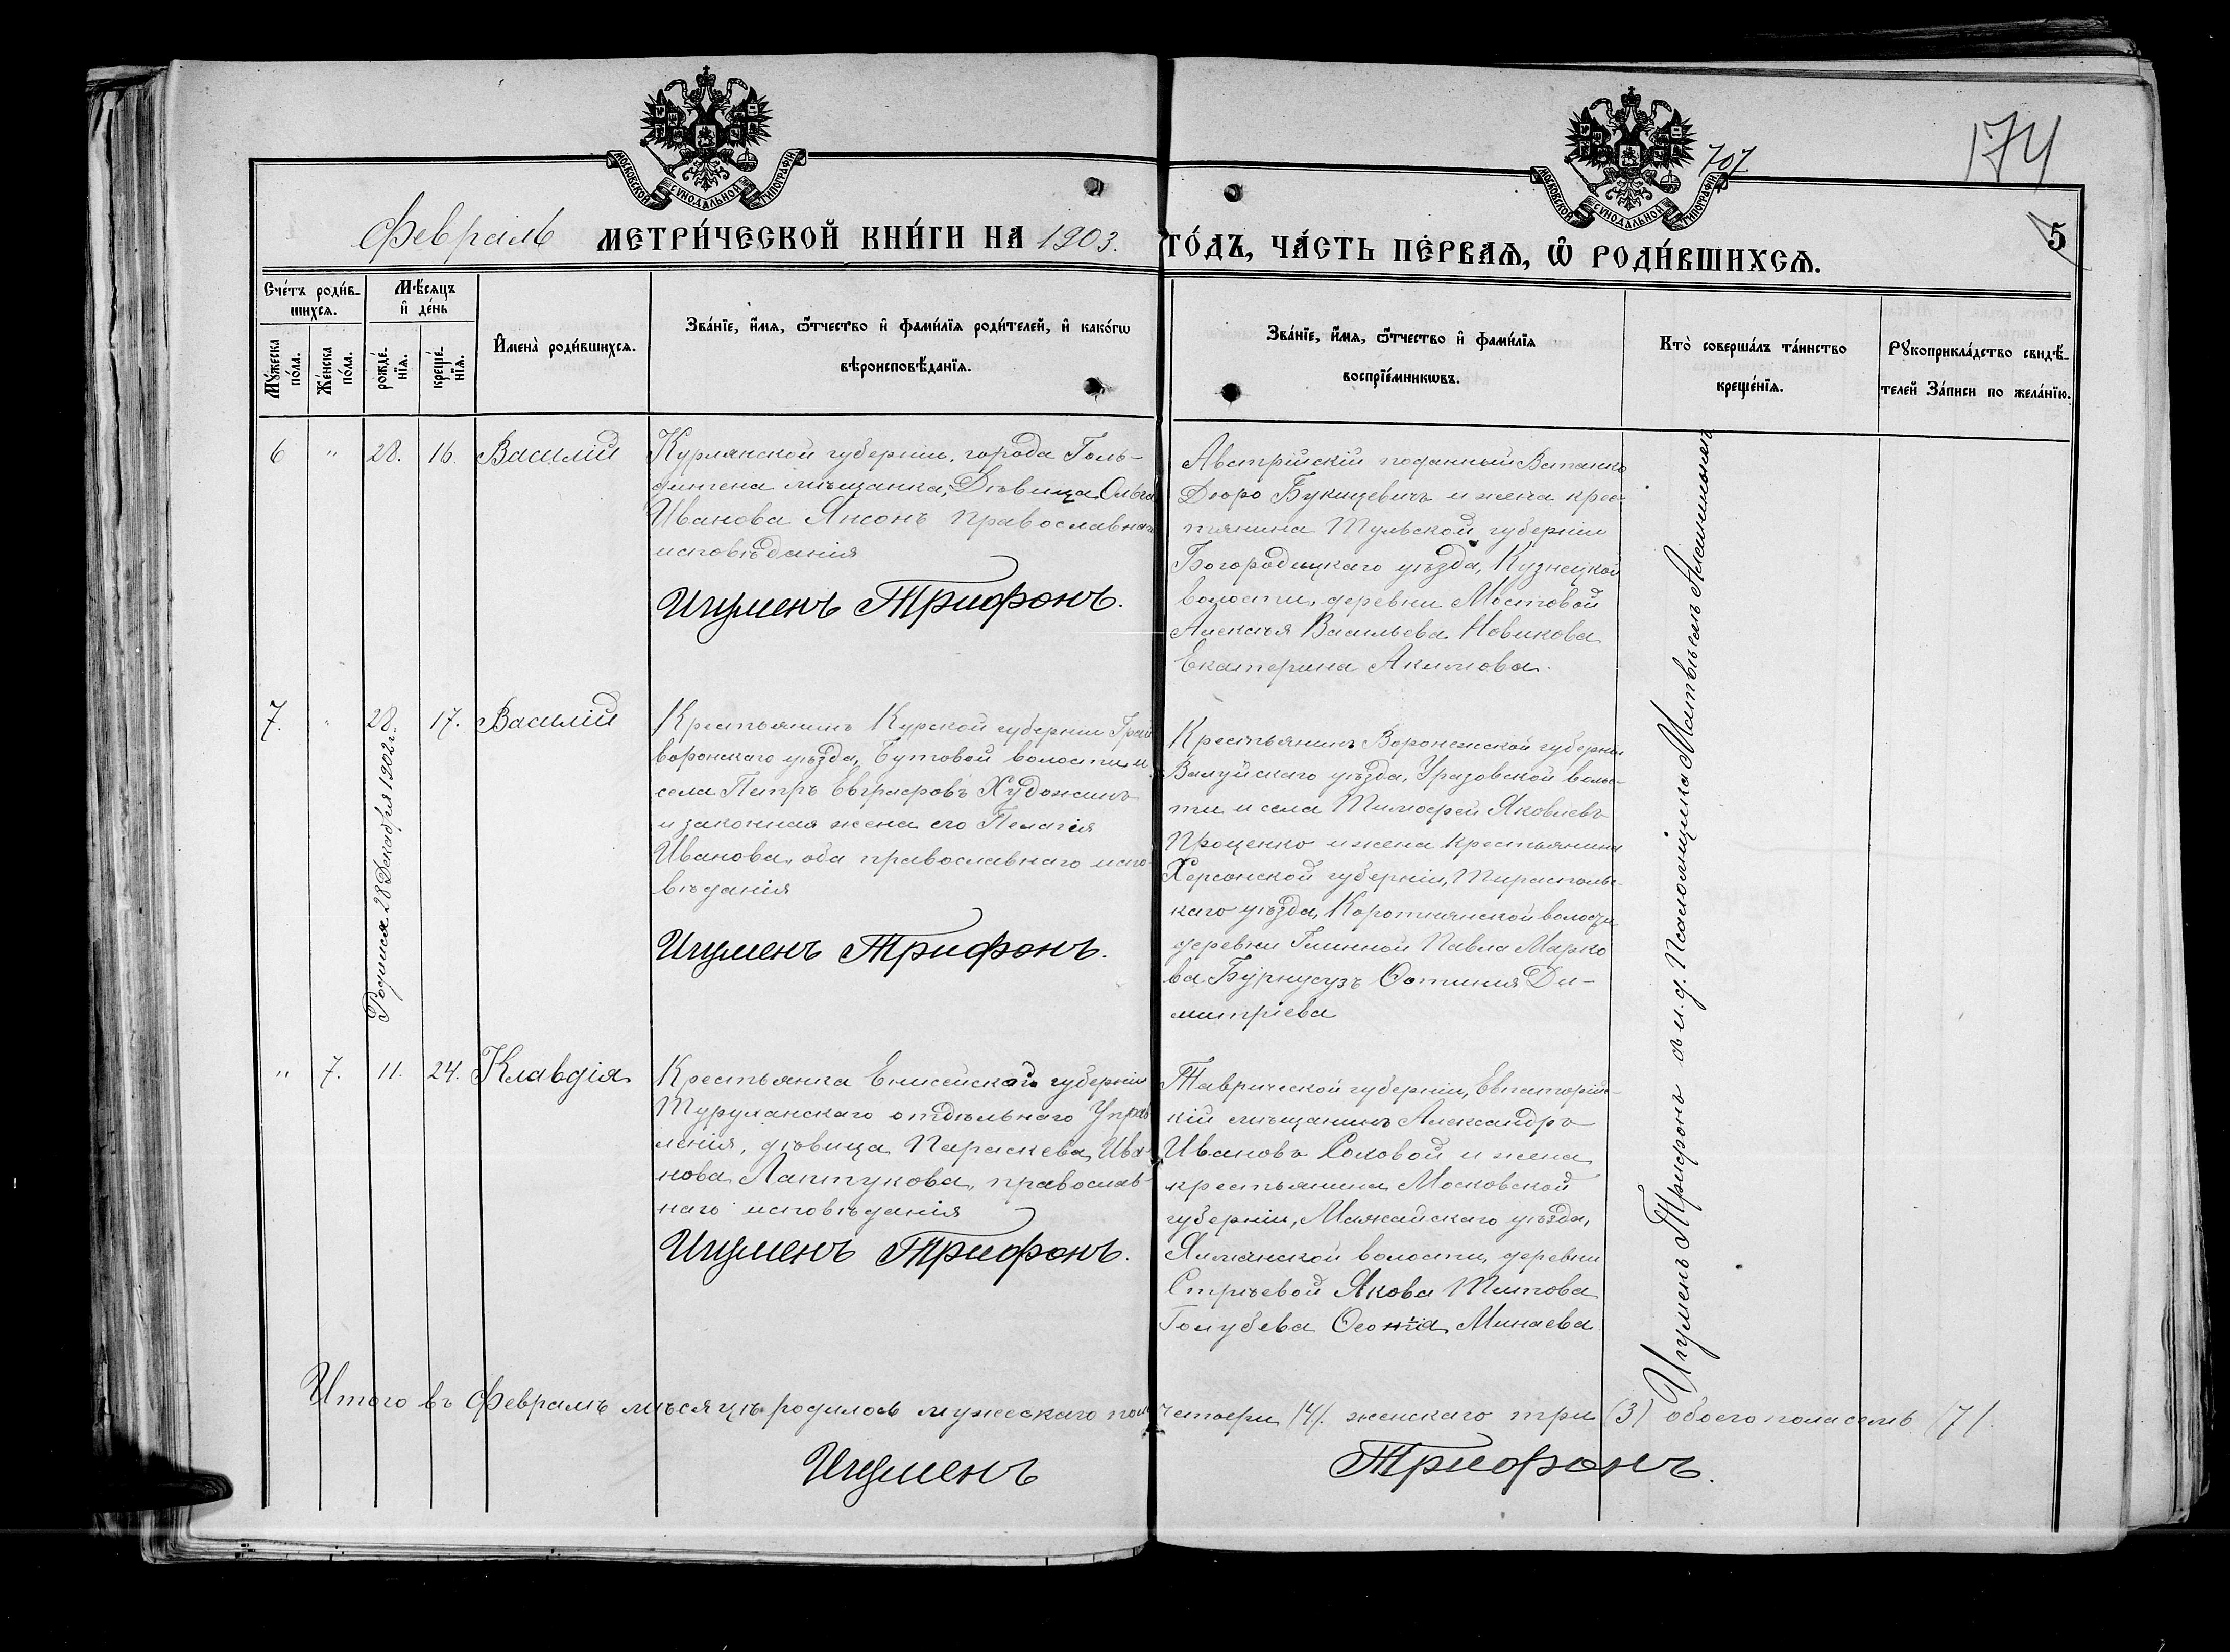 МОСКОВСКОЙ СУНОДАЛЬНОЙ ТИПОГРАФІИ
МОСКОВСКОЙ СУНОДАЛЬНОЙ ТИПОГРАФІИ
707
174
Февраль МЕТРИ́ЧЕСКОЙ КНИ́ГИ НА 1903. ГО́ДЪ, ЧА́СТЬ ПЕ́РВАЯ, Ѡ РОДИ́ВШИХСЯ.
5
Сче́тъ роди́в-
шихся.
Му́жеска по́ла.
Же́нска по́ла.
Мѣ́сяцъ
и де́нь
рожде́-
нїя.
креще́-
нїя.
Имена̀ роди́вшихся.
Зва́нїе, и́мя, ѻ́тчество и фами́лїя роди́телей, и како́гѡ
вѣроисповѣ́данїя.
Зва́нїе, и́мя, ѻ́тчество и фами́лїя
воспрїе́мникѡвъ.
Кто̀ соверша́лъ та́инство
креще́нїя.
Рꙋкоприкла́дство свидѣ́-
телей За́писи по жела́нїю.
6 " 28. 16. Василій
Курлянской губерніи, города Голь-
дингена мѣщанка, Дѣвица Ольга
Иванова Янсонъ православнаго
исповѣданія
Игуменъ Трифонъ.
Австрійскій поданный
Букицевичъ и жена крес-
тянина Тульской губерніи
Богородицкаго уѣзда, Кузнецкой
волости, деревни Мостовой
Алексѣя Васильева Новикова
Екатерина Акимова.
7. " 28. 17. Василій
Родился 28 Декабря 1902 г.
Крестьянинъ Курской губерніи Грай-
воронскаго уѣзда, Бутовой волости и
села Петръ Евграфовъ Художинъ
и законная жена его Пелагія
Иванова, оба православнаго испо-
вѣданія
Игуменъ Трифонъ.
Крестьянинъ Воронежской губерніи
Валуйскаго уѣзда, Уразовской волос-
ти и села Тимофей Яковлевъ
Проценко и жена крестьянина
Херсонской губерніи, Тираспольс-
каго уѣзда, Коротнянской волости
деревни Глинной Павла Марко
ва Фотинія Ди-
митріева
" 7. 11. 24. Клавдія
Крестьянка Енисейской губерніи
Туруханскаго отдѣльнаго Управ
ленія, дѣвица Параскева Ива-
нова Лаптукова, православ-
наго исповѣданія
Игуменъ Трифонъ.
Таврической губерніи, Евпаторійс-
кій мѣщанинъ Александръ
Ивановъ Соловой и жена
крестьянина Московской
губерніи, Можайскаго уѣзда,
волости, деревни
Якова Титова
Голубева Минаева
Игуменъ Трифонъ съ и. д. Псаломщика
Итого въ Февралѣ мѣсяцѣ родилось мужескаго пола четверы (4). женскаго три (3) обоего пола семь (7).
Игуменъ Трифонъ.